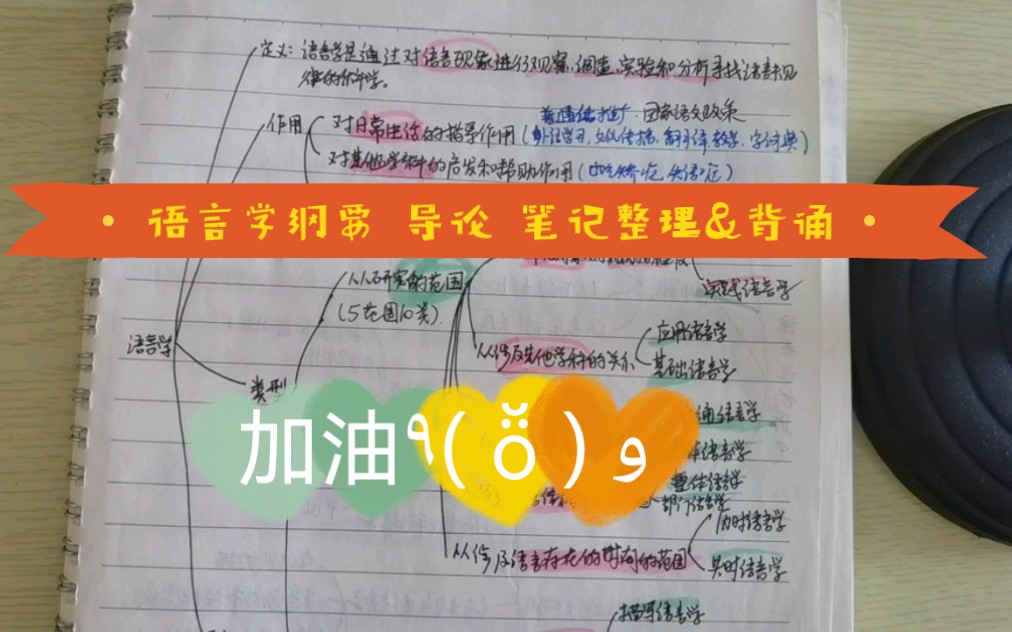 定义：语言学是通过对语言现象进行观察、调查、实验和分析寻找语言规
律的科学。
普通话推广、国家语文政策
作用
对日常生活的指导作用（外语学习、文化传播、翻译、教学、字词典）
对其他学科的启发和帮助作用（口吃矫治、失语症）
· 语言学纲要 导论 笔记整理&背诵 ·
从研究的范围
（5范围10类）
实践语言学
语言学
应用语言学
从涉及其他学科的关系
基础语言学
类型
加油٩( ö̆ ) و
通语言学
体语言学
整体语言学
部门语言学
历时语言学
从涉及语言存在的时间的范围
共时语言学
描写语言学